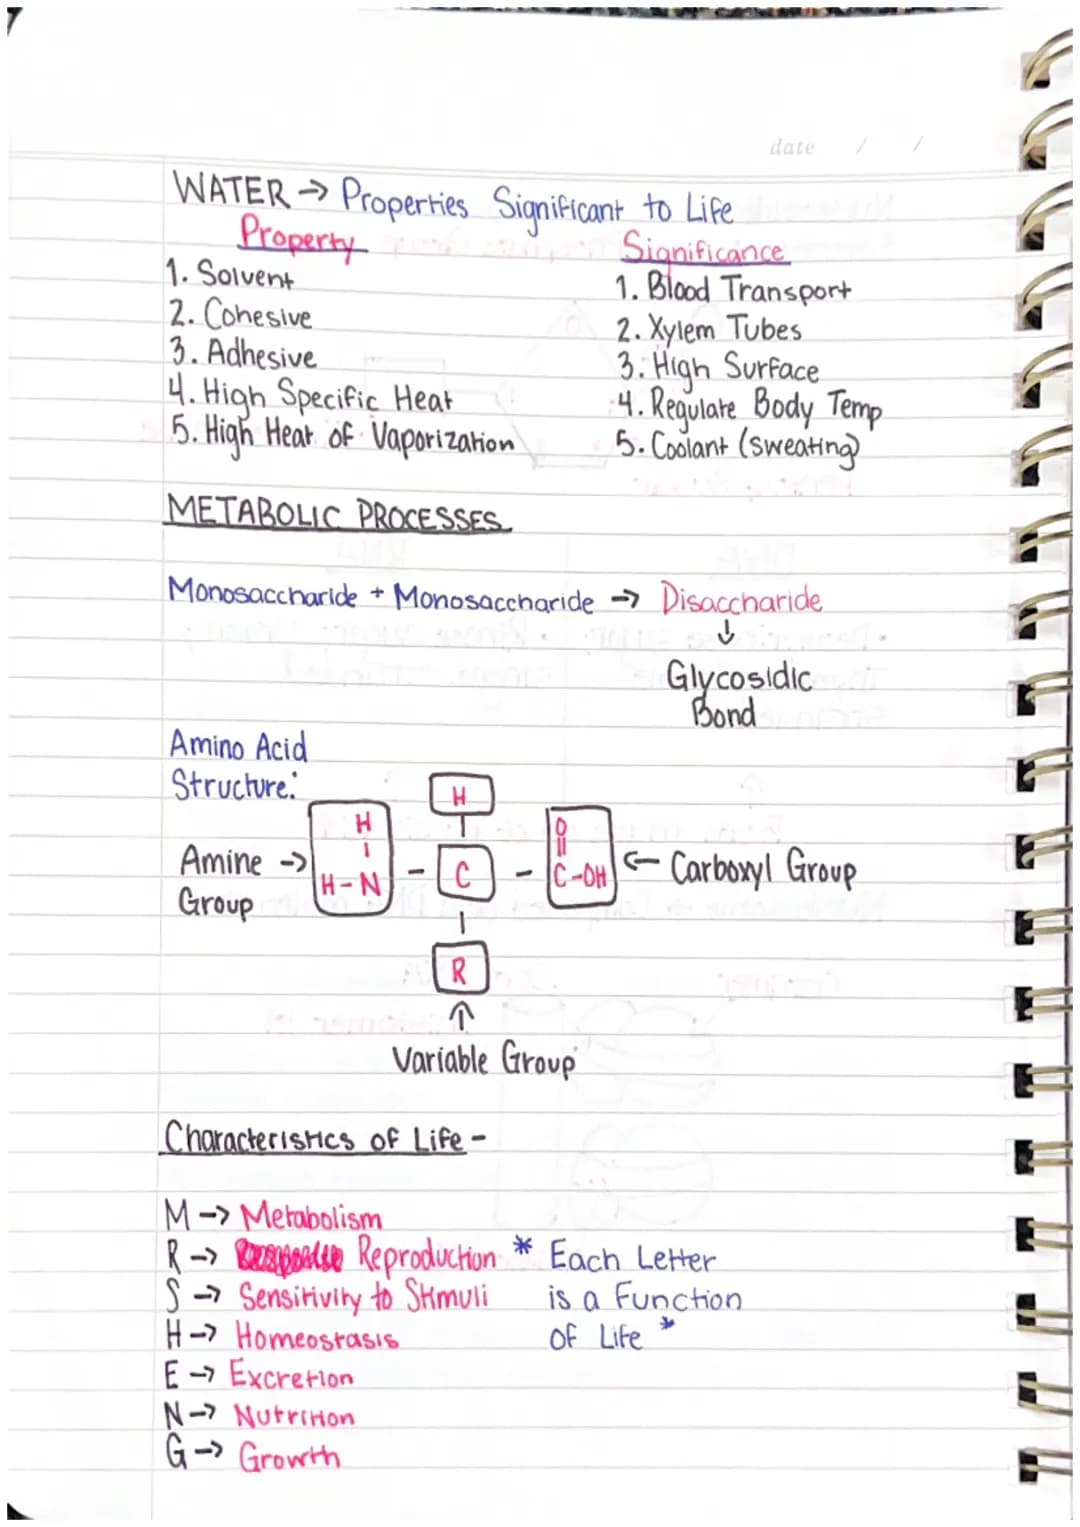 date / /
WATER → Properties Significant to Life
Property Significance
1. Solvent 1. Blood Transport
2. Cohesive 2. Xylem Tubes
3. Adhesive 3. High Surface
4. High Specific Heat 4. Regulate Body Temp
5. High Heat of Vaporization 5. Coolant (sweating)
METABOLIC PROCESSES
Monosaccharide + Monosaccharide → Disaccharide
↓
Glycosidic
Bond
Amino Acid
Structure:
H
H O
Amine → H-N - C - C-OH ← Carboxyl Group
Group
R
↑
Variable Group
Characteristics of Life -
M → Metabolism
R → Reproduction * Each Letter
S → Sensitivity to Stimuli is a Function
H → Homeostasis of Life *
E → Excretion
N → Nutrition
G → Growth